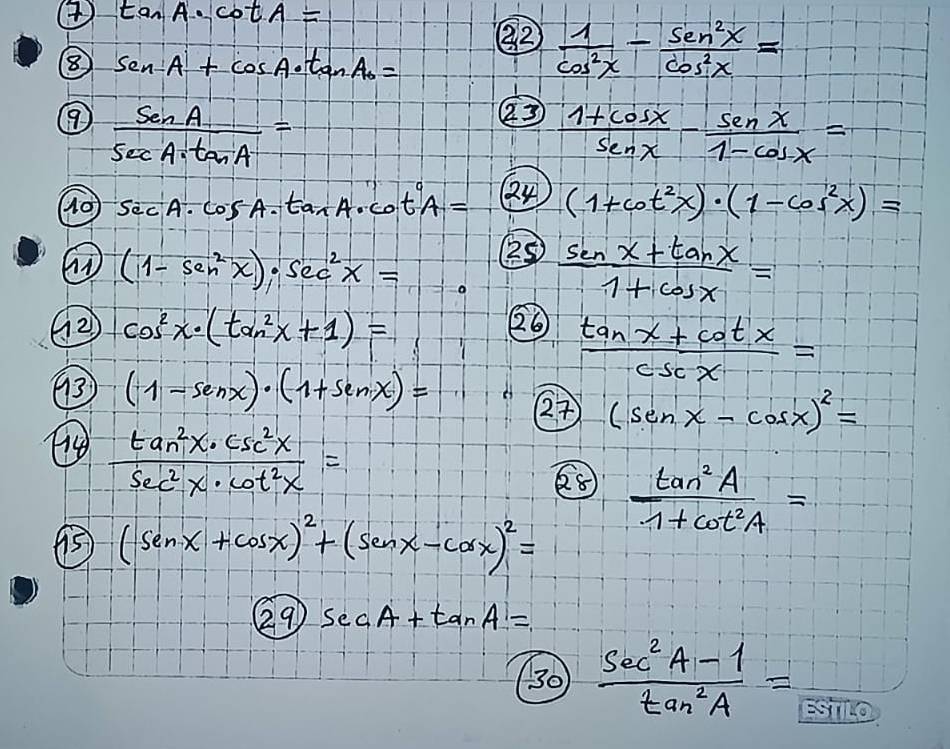 7) tan A · cot A =
8) sen A + cos A · tan A. =
9) sen A / sec A · tan A =
10) sec A · cos A · tan A · cot A =
11) (1 - sen² x) · sec² x =
12) cos² x · (tan² x + 1) =
13) (1 - sen x) · (1 + sen x) =
14) tan² x · csc² x / sec² x · cot² x =
15) (sen x + cos x)² + (sen x - cos x)² =
22) 1 / cos² x - sen² x / cos² x =
23) 1 + cos x / sen x - sen x / 1 - cos x =
24) (1 + cot² x) · (1 - cos² x) =
25) sen x + tan x / 1 + cos x =
26) tan x + cot x / csc x =
27) (sen x - cos x)² =
28) tan² A / 1 + cot² A =
29) sec A + tan A =
30) sec² A - 1 / tan² A =
ESTILO